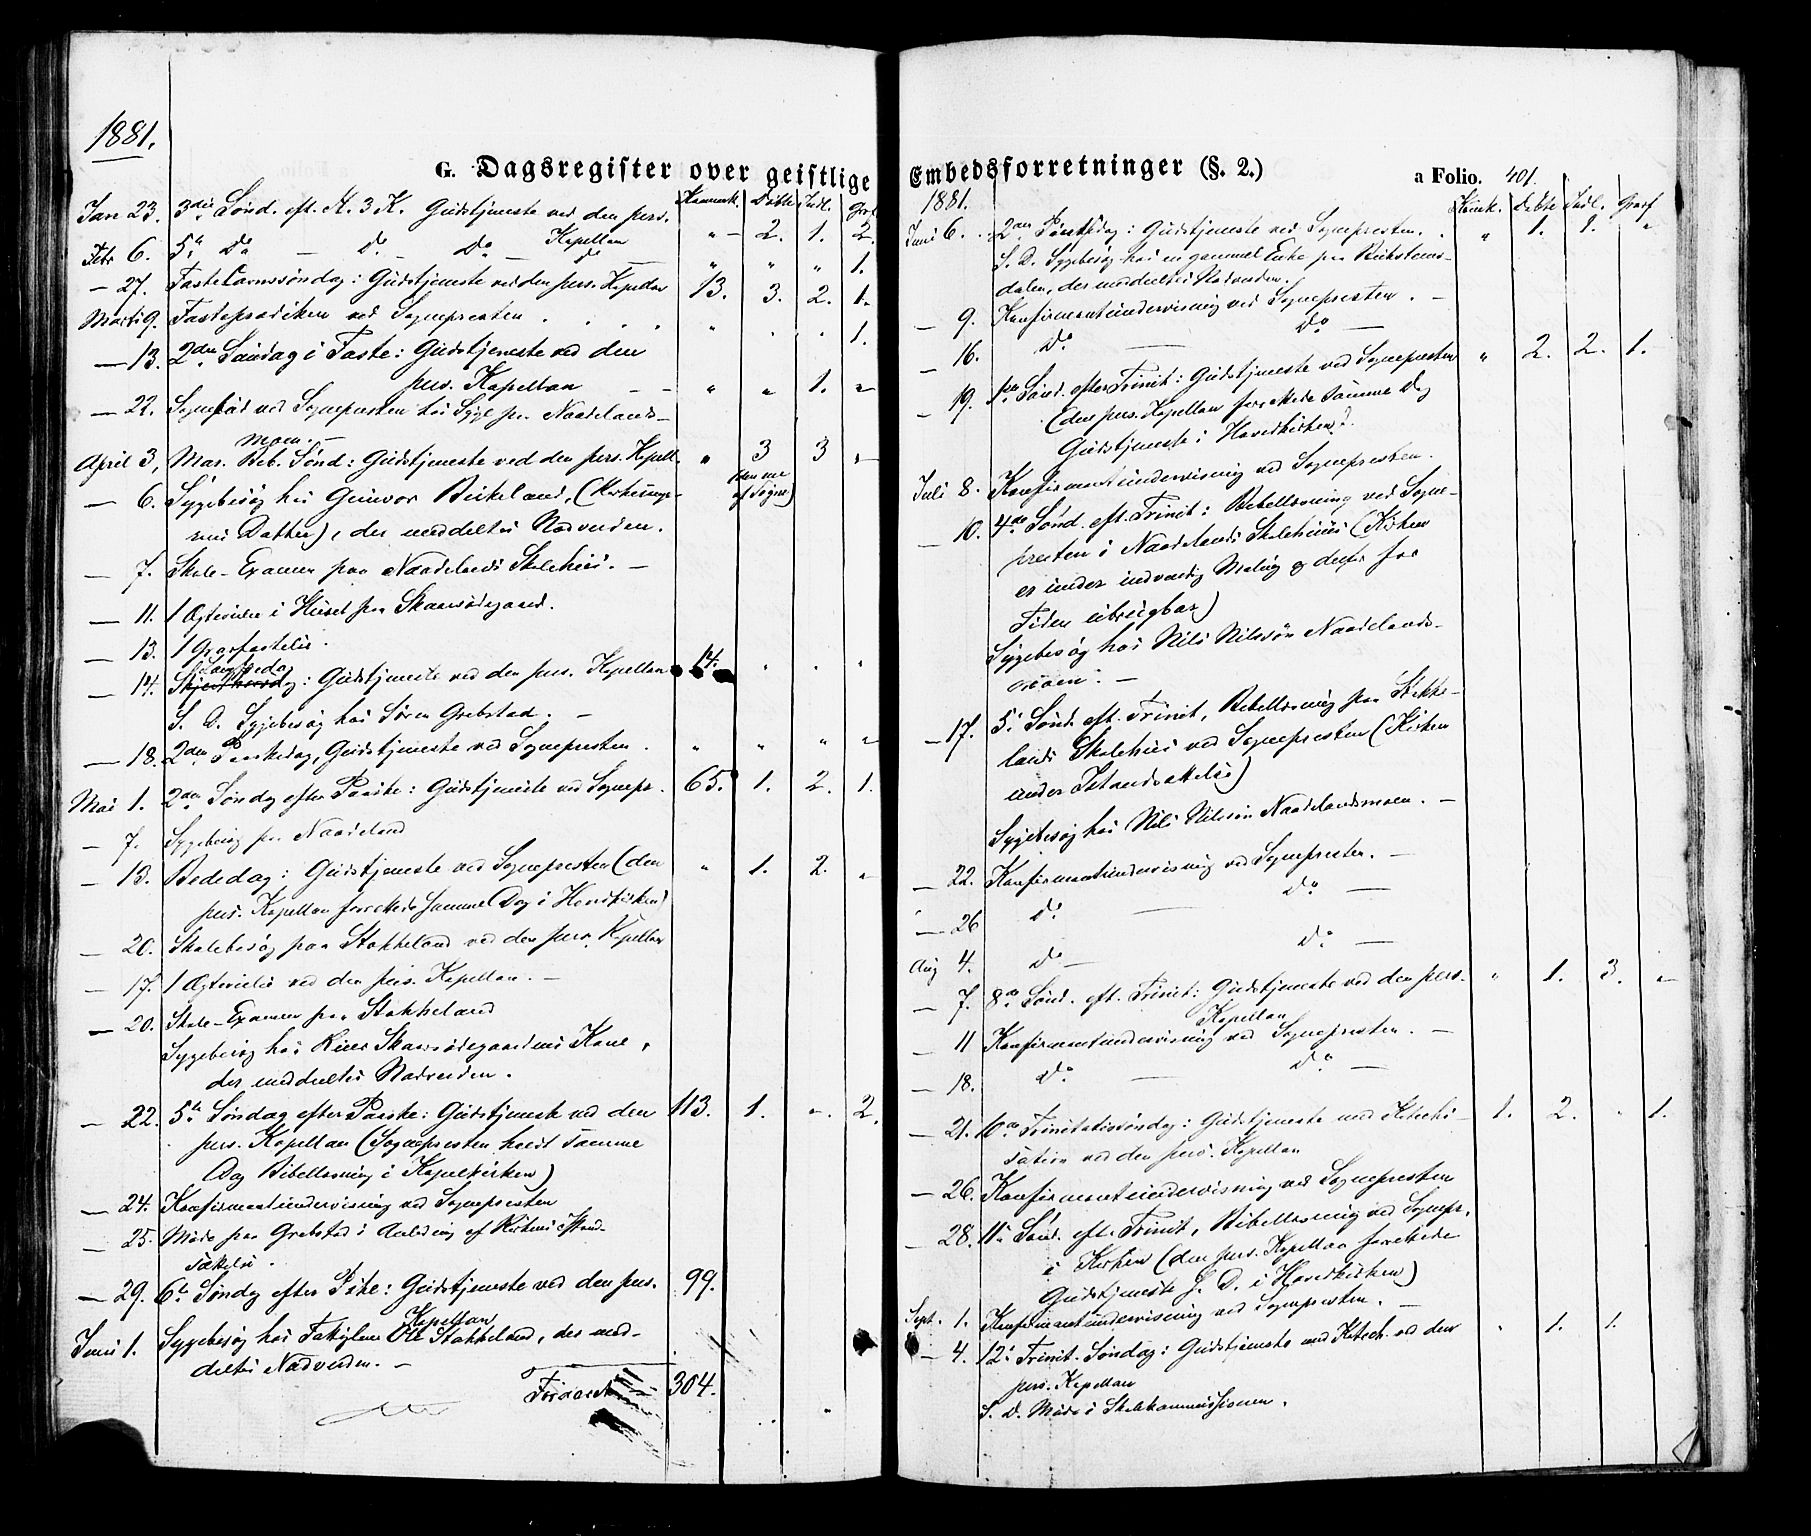 1881.
G. Dagsregister over geistlige
Kommunik. Døbte Indl. Graf
Jan 23. 3die Sønd. eft. H. 3 K. Gudstjeneste ved den pers. Kapellan " 2. 1. 2.
Febr 6. 5te Do Do Do do " " " 1.
— 27. Fastelavnssøndag: Gudstjeneste ved den pers. Kapellan 13. 3. 2. 1.
Marts 9. Fasteprædiken ved Sognepresten . . . . " . . 1.
— 13. 2den Søndag i Faste: Gudstjeneste ved den
pers. Kapellan — — " " 1. "
— 22. ved Sognepresten hos Syge paa Naadelands-
moen. —
April 3, Mar. Beb. Sønd: Gudstjeneste ved den pers. Kapell. " 3 3 "
— 6. Sygebesøg hos Gunvor Birkeland, (Kirkesanger-
ens Datter), der meddeltes Nadverden.
— 7. Skole-Examen paa Naadelands Skolehus. —
— 11. 1 Ægtevielse i Huset paa Skaarsødegaard.
— 13. 1 Gravfæstelse.
Langfredag
— 14. Skjærthorsdag: Gudstjeneste ved den pers. Kapellan 14. " " "
S. D. Sygebesøg hos Søren Grebstad. —
— 18. 2den Paaskedag, Gudstjeneste ved Sognepresten . " " " "
Mai 1. 2den Søndag efter Paaske: Gudstjeneste ved Sognepr. 65. 1. 2. 1.
— 7. Sygebesøg paa Naadeland
— 13. Bededag: Gudstjeneste ved Sognepresten (den " 1. 2. "
pers. Kapellan forrettede samme Dag i Hovedkirken)
— 20. Skolebesøg paa Stokkeland ved den pers. Kapellan
— 17. 1 Ægtevielse ved den pers. Kapellan. —
— 20. Skole-Examen paa Stokkeland
Sygebesøg hos Skaarsødegaardens Kone,
der meddeltes Nadverden.
— 22. 5te Søndag efter Paaske: Gudstjeneste ved den 113. 1. ". 2.
pers. Kapellan (Sognepresten holdt samme
Dag Bibellæsning i Kapelkirken)
— 24. Konfirmantundervisning ved Sognepresten
— 25. Møde paa Grebstad i Anledning af Kirkens Istand-
sættelse.
— 29. 6te Søndag efter Pske: Gudstjeneste ved den pers. 99.
Kapellan
Juni 1. Sygebesøg hos Ole Stokkeland, der med-
deltes Nadverden. —
304.
Embedsforretninger (§. 2.)
a Folio. 401.
1881.
Døbte Indl. Graf
Juni 6. 2den Pinstdag: Gudstjeneste ved Sognepresten. . " 1. 1. "
S. D. Sygebesøg hos en gammel Enke paa
dalen, der meddeltes Nadverden.
— 9. Konfirmantundervisning ved Sognepresten. —
— 16. Do — Do —
— 19. 1ste Sønd. efter Trinit: Gudstjeneste ved Sognepresten " 2. 2. 1.
(den pers. Kapellan forrettede samme Dag
Gudstjeneste i Hovedkirken).
Juli 8. Konfirmantundervisning ved Sognepresten.
— 10. 4de Sønd. eft. Trinit: Bibellæsning ved Sogne-
presten i Naadelands Skolehus (Kirken
er under indvendig Maling og derfor for
Tiden ubrugbar)
Sygebesøg hos Nils Nilssøn Naadelands-
moen. —
— 17. 5te Sønd. eft. Trinit, Bibellæsning paa Stokke-
lands Skolehus ved Sognepresten (Kirken
under Istandsættelse)
Sygebesøg hos Nils Nilssøn Naadelandsmoen. —
— 22. Konfirmantundervisning ved Sognepresten. —
— 26 Do — Do —
Aug 4. Do — Do —
— 7. 8de Sønd. eft. Trinit: Gudstjeneste ved den pers. " 1. 3. "
Kapellan
— 11 Konfirmantundervisning ved Sognepresten. —
— 18. Do — Do —
— 21. 10de Trinitatissøndag: Gudstjeneste med Katechi- 1. 2. " 1.
sation ved den pers. Kapellan
— 26. Konfirmantundervisning ved Sognepresten
— 28. 11te Sønd. eft. Trinit, Bibellæsning ved Sognepr.
i Kirken (den pers. Kapellan forrettede
Gudstjeneste S. D. i Hovedkirken)
Sept. 1. Konfirmantundervisning ved Sognepresten. —
— 4. 12te Trinit. Søndag: Gudstjeneste med Katech. ved den " 1. 1.
pers. Kapellan
S. D. Møde i Skolekommissionen.